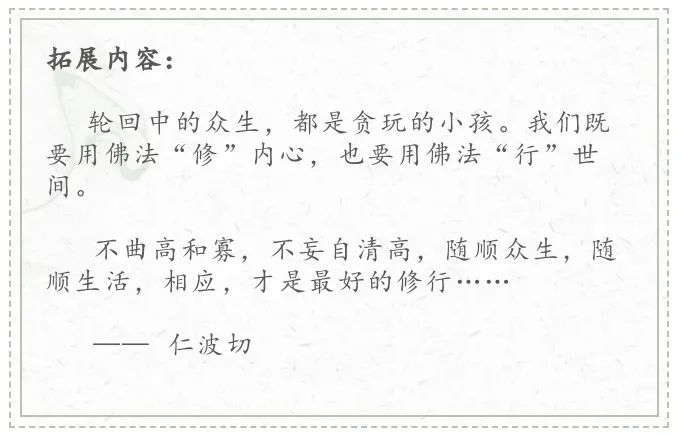 拓展内容：
轮回中的众生，都是贪玩的小孩。我们既
要用佛法“修”内心，也要用佛法“行”世
间。
不曲高和寡，不妄自清高，随顺众生，随
顺生活，相应，才是最好的修行……
—— 仁波切